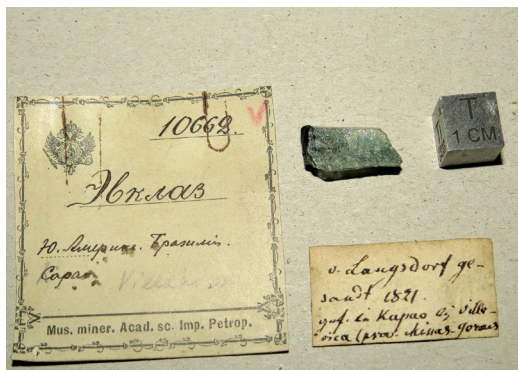 10662.
Эвклаз
Ю. Америка. Бразилія.
Capao
Mus. miner. Acad. sc. Imp. Petrop.
T
1 CM
v. Langsdorf ge-
sandt 1821.
gef. in Kapao bij Villa-
rica (prov. Minas geraes